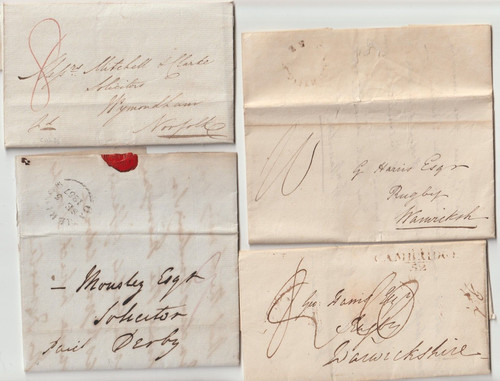 8
Messrs Mitchell & Clarke
Solicitors
Wymondham
Norfolk
10
G Harris Esqr
Rugby
Warwicksh
1807
— Mousley Esqr
Solicitor
Paid Derby
CAMBRIDGE
52
8
Rugby
Warwickshire